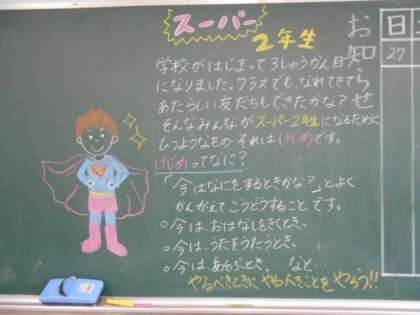 スーパー
2年生
学校がはじまって3しゅうかん目
になりました。クラスでも、なれてきて
あたらしい友だちもできたかな？
そんなみんながスーパー2年生になるために
ひつようなもの それは けじめ です。
けじめってなに？
「今はなにをするときかな？」とよく
かんがえてこうどうすること です。
○今は、おはなしをきくとき。
○今は、うたをうたうとき。
○今は、あそぶとき、 など…
やるべきときに やるべきことを やろう!!
お知らせ
日
27